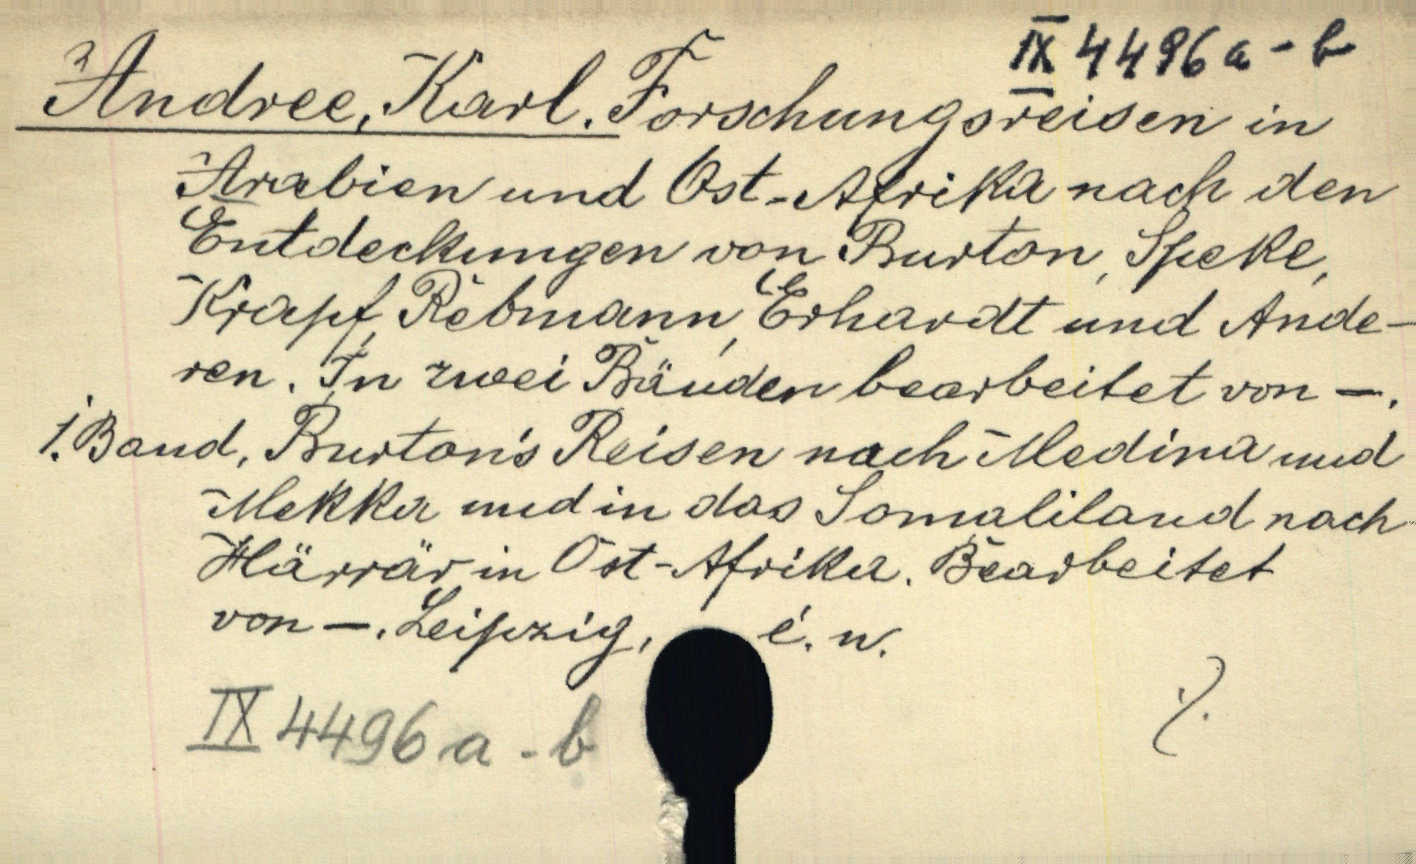 IX 4496 a - b
Andree, Karl. Forschungsreisen in
Arabien und Ost-Afrika nach den
Entdeckungen von Burton, Speke,
Krapf, Rebmann, Erhardt und Ande-
ren. In zwei Bänden bearbeitet von —.
1. Band, Burton's Reisen nach Medina und
Mekka und in das Somaliland nach
Härrär in Ost-Afrika. Bearbeitet
von —. Leipzig, é. n.
IX 4496 a - b
./.